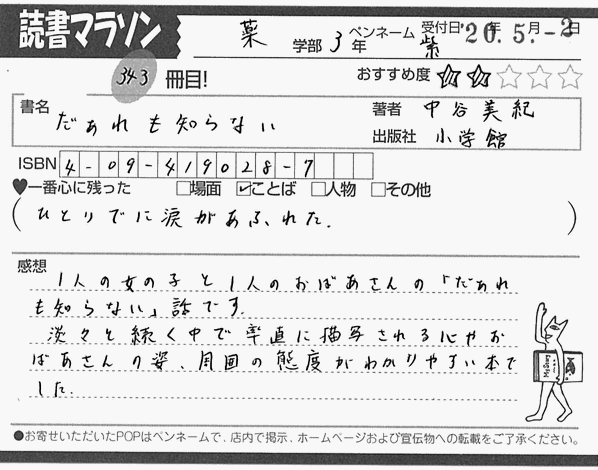 読書マラソン
薬学部 3年 ペンネーム 紫 受付日 20.5.-2 年月日
343冊目! おすすめ度 ★★☆☆☆
書名 だぁれも知らない
著者 中谷美紀
出版社 小学館
ISBN 4-09-419028-7
♥一番心に残った □場面 ☑ことば □人物 □その他
(ひとりでに涙があふれた.)
感想
1人の女の子と1人のおばあさんの「だぁれ
も知らない」話です.
淡々と続く中で率直に描写される心やお
ばあさんの姿、周囲の態度がわかりやすい本で
した.
●お寄せいただいたPOPはペンネームで、店内で掲示、ホームページおよび宣伝物への転載をご了承ください。